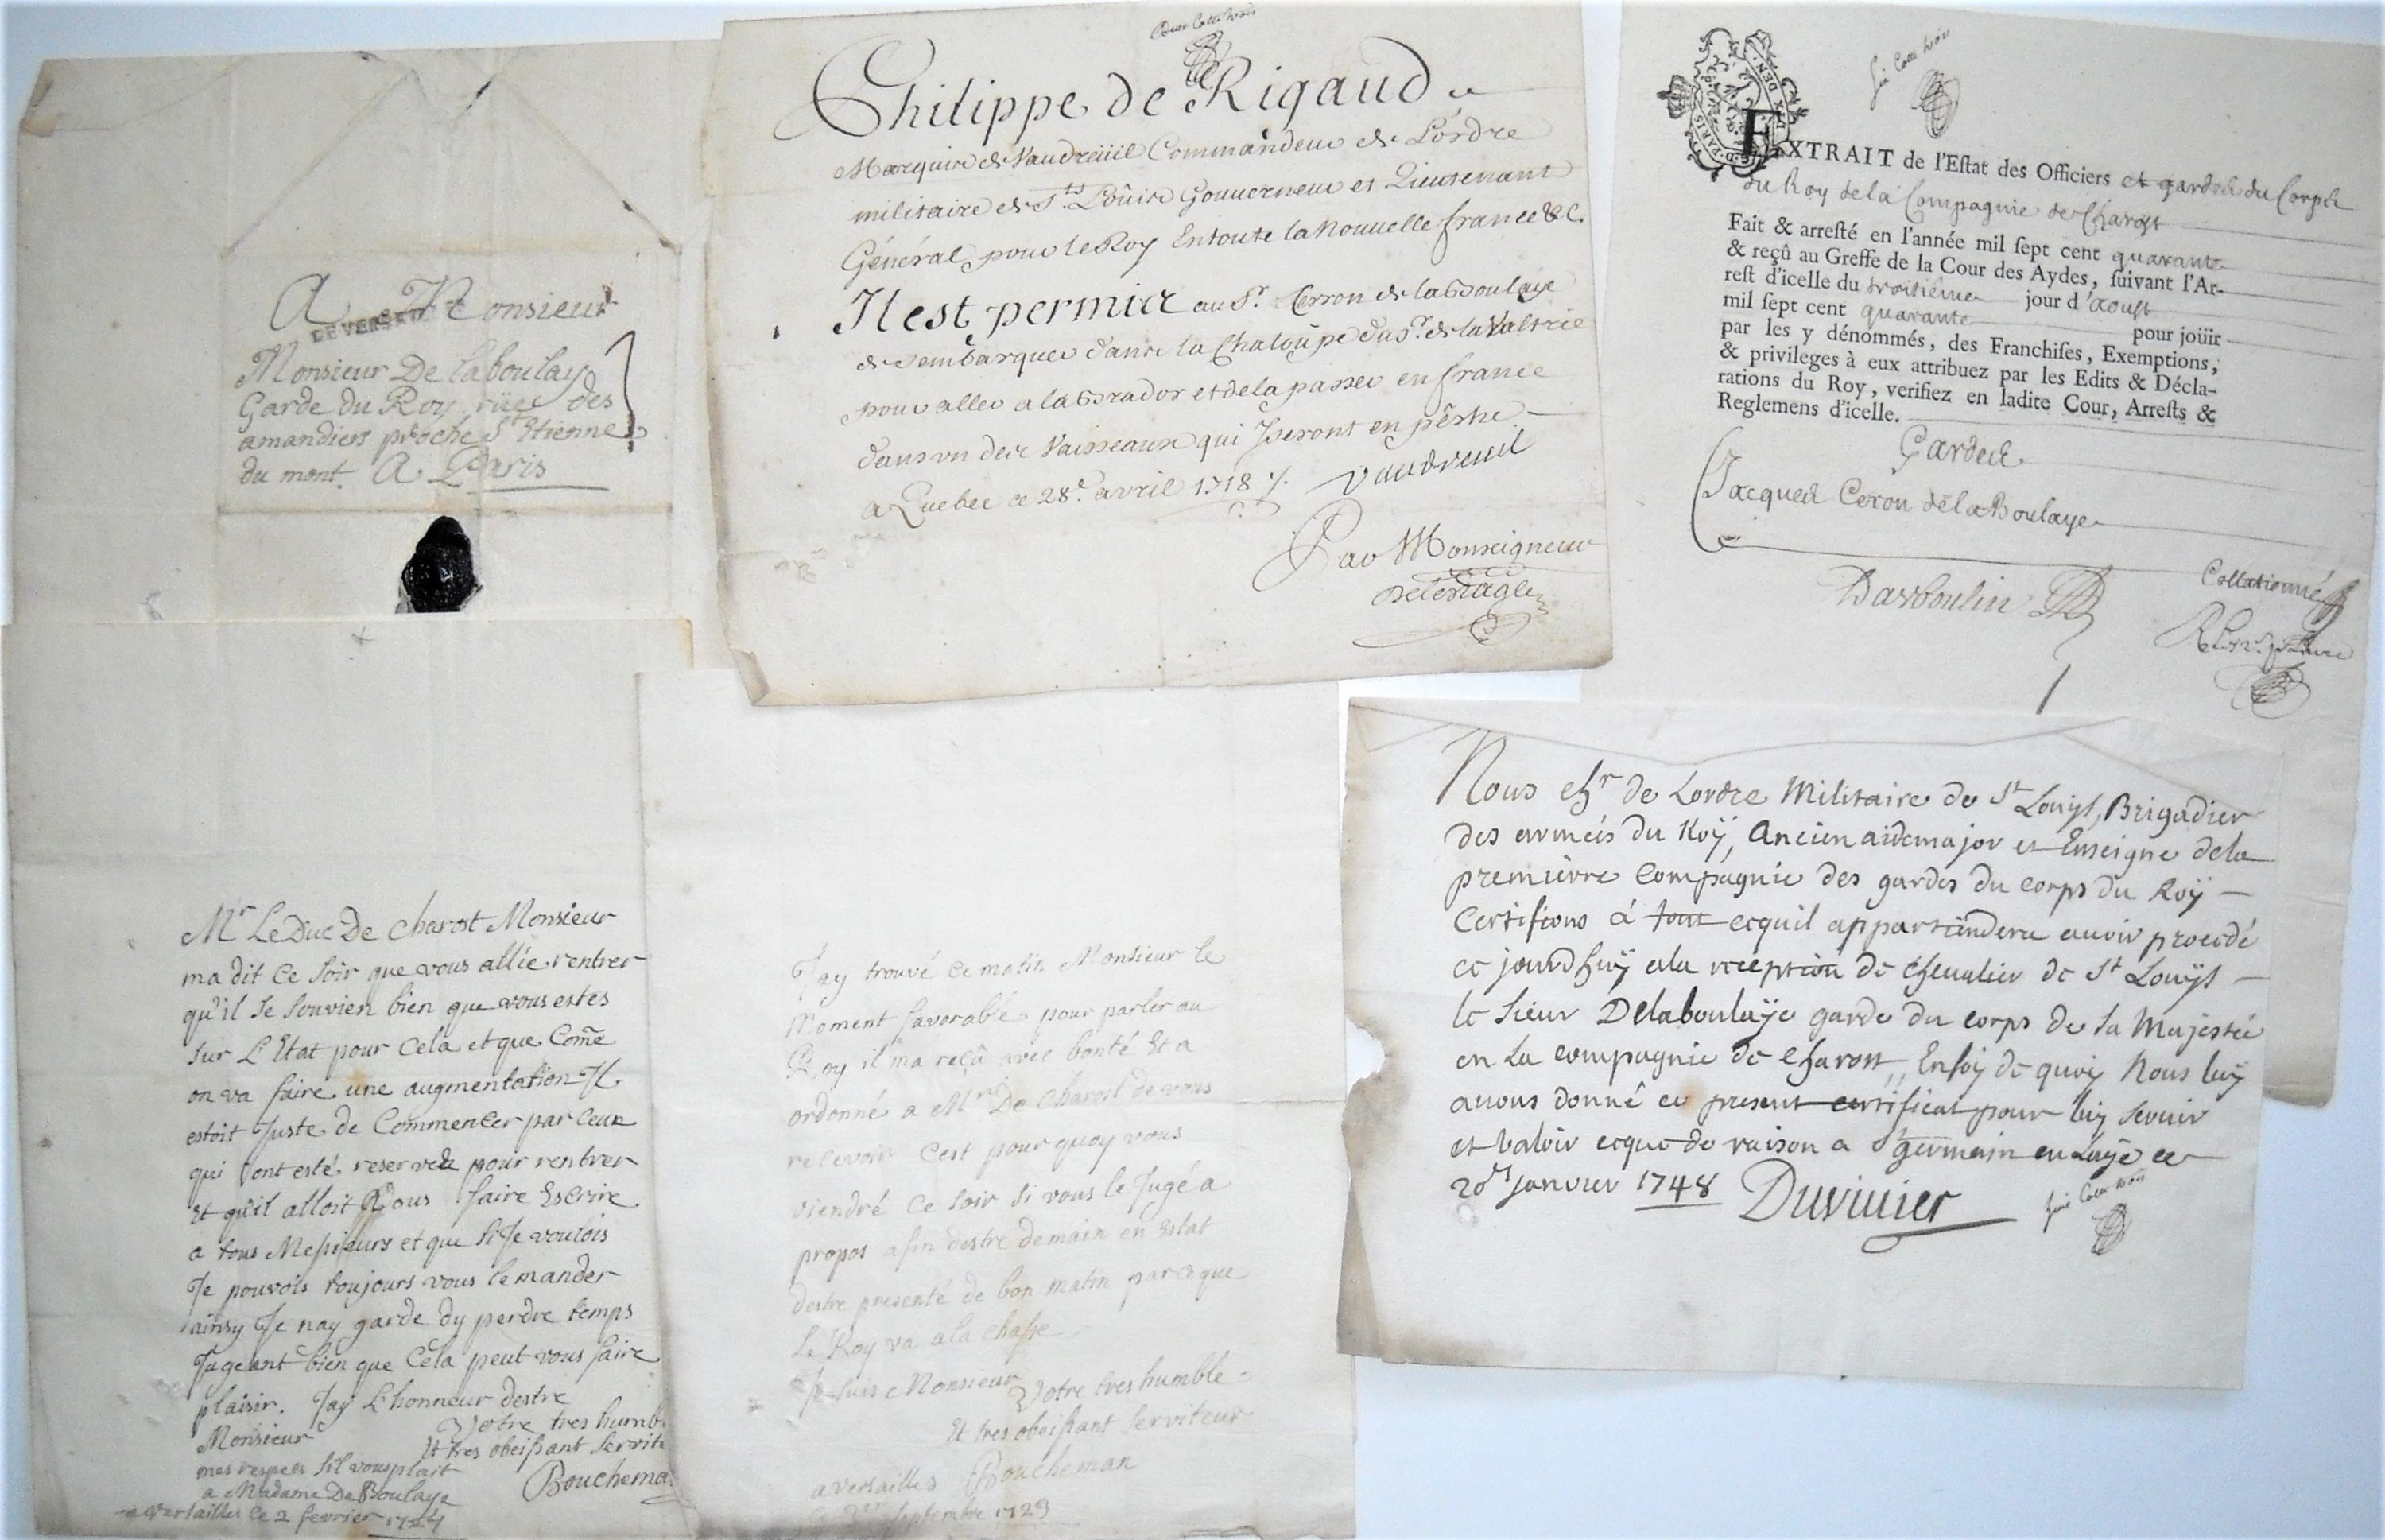 A Monsieur
DE VERSAILLES
Monsieur De laboulaye
Garde du Roy rüe des
amandiers proche St Etienne
du mont. A Paris
Philippe de Rigaud
Marquis de Vaudreüil Commandeur de L'ordre
militaire de St. Loüis Gouuerneur et Lieutenant
Général pour le Roy En toute la Nouuelle france &c.
Il est permis au Sr. Cerron de la Boulaye
de s'embarquer dans la Chaloupe du Sr. de la Valtrie
pour aller a la Brador et de la passer en france
dans vn des Vaisseaux qui Iseront en pêsche
a Quebec ce 28e. avril 1718 /.
Vaudreuil
Par Monseigneur
Delestage
EXTRAIT de l'Estat des Officiers et gardes du Corps
du Roy de la Compagnie de Charost
Fait & arresté en l'année mil sept cent quarante
& reçû au Greffe de la Cour des Aydes, suivant l'Ar-
rest d'icelle du troisième jour d'aoust
mil sept cent quarante pour joüir
par les y dénommés, des Franchises, Exemptions,
& privileges à eux attribuez par les Edits & Décla-
rations du Roy, verifiez en ladite Cour, Arrests &
Reglemens d'icelle.
Gardes
Jacques Ceron de la Boulaye
Darboulin
Collationné
Mr Le Duc De Charost Monsieur
ma dit ce soir que vous allie rentrer
qu'il se souvien bien que vous estes
sur L'Etat pour Cela et que Come
on va faire une augmentation Il
estoit Juste de Commencer par Ceux
qui ont esté reservez pour rentrer
Et qu'il alloit Vous faire Escrire
a tous Messieurs et que si Je voulois
Je pouvois toujours vous le mander
ainsy Je nay garde dy perdre temps
Jugeant bien que Cela peut vous faire
plaisir. Jay L'honneur destre
Monsieur
Votre tres humb
Et tres obeissant Servite
mes respecs sil vous plait
a Madame De Boulaye
Bouchema
a versailles Ce 2 fevrier 1724
Jay trouvé Ce matin Monsieur le
Moment favorable pour parler au
Roy il ma reçû avec bonté Et a
ordonné a Mr De Charost de vous
recevoir Cest pour quoy vous
viendré Ce soir si vous le Jugé a
propos afin destre demain en Estat
destre presenté de bon matin parceque
Le Roy va a la chasse
Je suis Monsieur
Votre tres humble
Et tres obeissant Serviteur
Boucheman
a versailles
septembre 1723
Nous chr de Lordre Militaire de St Louys, Brigadier
des armeés du Roÿ, Ancien aidemajor et Enseigne dela
premierre Compagnie des gardes du corps du Roÿ
Certifions à tout ecquil appartiendera auoir procedé
ce jourdhuÿ ala reception de chevalier de St Louÿs
le sieur Delaboulaÿe garde du corps de sa Majesté
en La compagnie de Charost, En foy de quoy Nous luy
auons donné ce present certificat pour luy seruir
et valoir ecque de raison a St germain en Laÿe ce
20e Janvier 1748 Duvivier